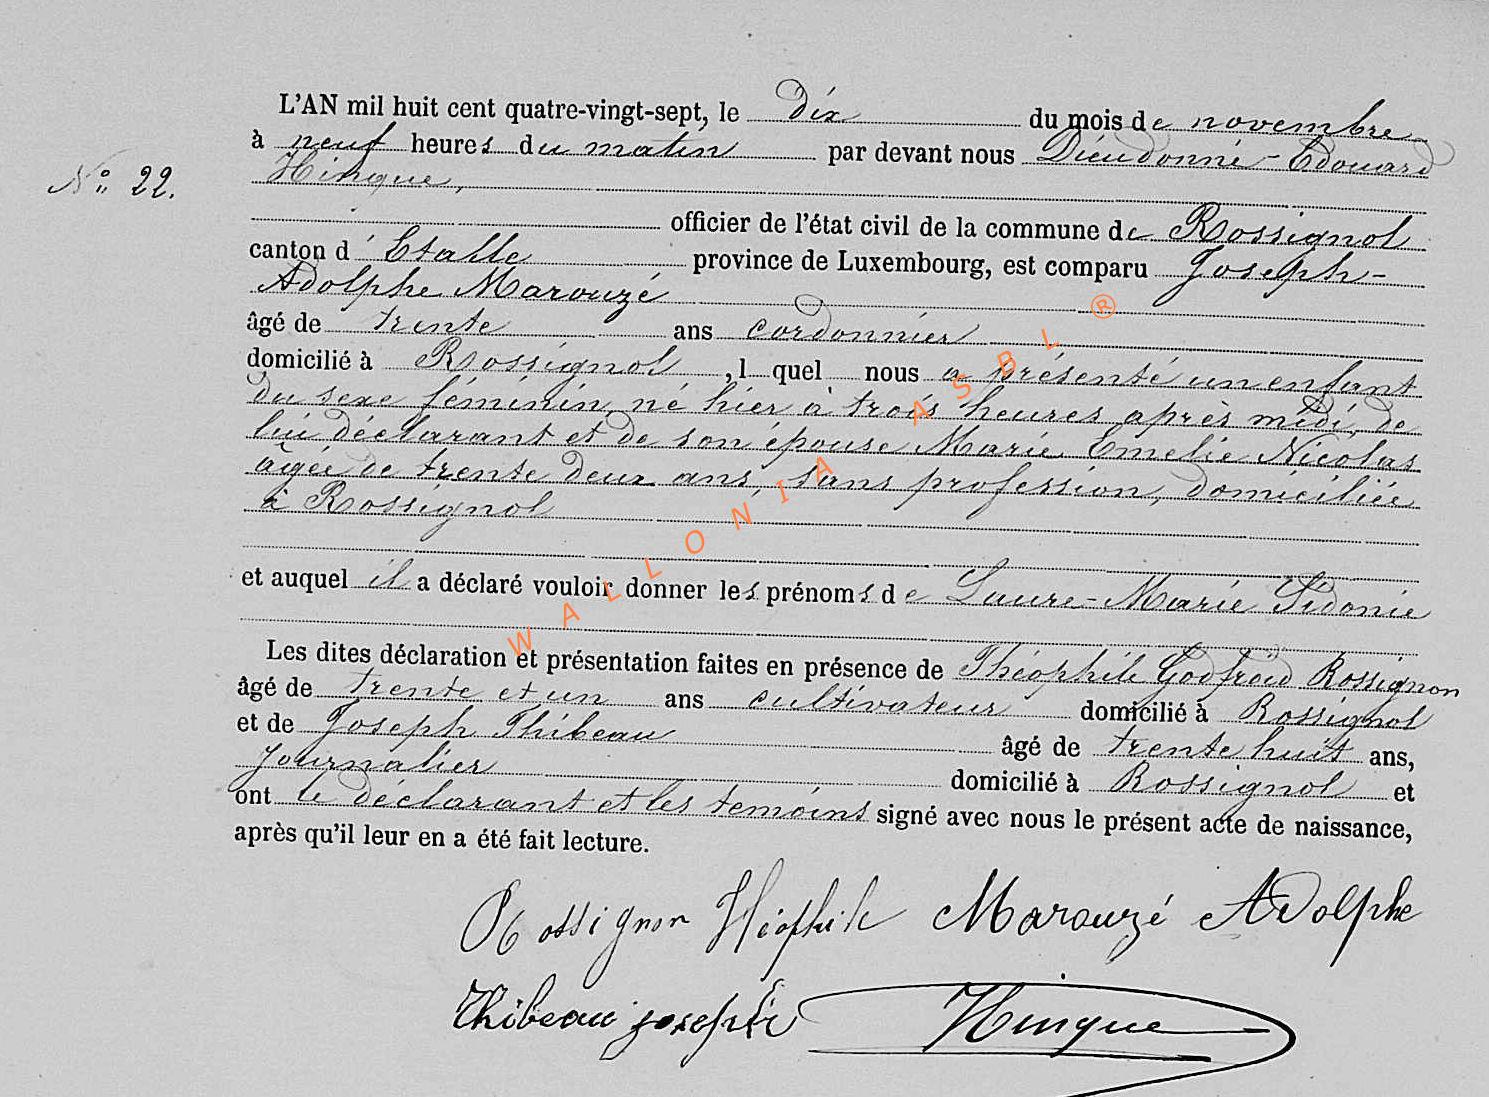 L'AN mil huit cent quatre-vingt-sept, le dix du mois de novembre
à neuf heures du matin par devant nous Dieudonné-Edouard
N° 22. Hinque,
officier de l'état civil de la commune de Rossignol
canton d'Etalle province de Luxembourg, est comparu Joseph-
Adolphe Marouzé
âgé de trente ans cordonnier
domicilié à Rossignol, l quel nous a présenté un enfant
du sexe féminin, né hier à trois heures après midi, de
lui déclarant et de son épouse Marie Emelie Nicolas
âgée de trente deux ans, sans profession, domiciliée
à Rossignol
et auquel il a déclaré vouloir donner les prénoms de Laure-Marie Sidonie
Les dites déclaration et présentation faites en présence de Théophile Godfroid Rossignon
âgé de trente et un ans cultivateur domicilié à Rossignol
et de Joseph Thibeau âgé de trente huit ans,
Journalier domicilié à Rossignol et
ont le déclarant et les temoins signé avec nous le présent acte de naissance,
après qu'il leur en a été fait lecture.
Rossignon Théophile Marouzé Adolphe
Thibeau joseph Hinque
WALLONIA ASBL ®